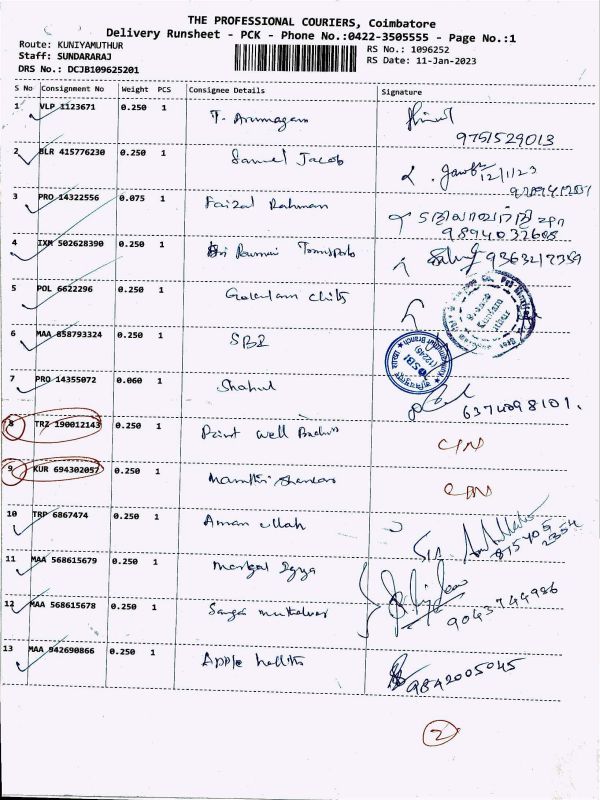 THE PROFESSIONAL COURIERS, Coimbatore
Delivery Runsheet - PCK - Phone No.:0422-3505555 - Page No.:1
Route: KUNIYAMUTHUR
RS No.: 1096252
Staff: SUNDARARAJ
RS Date: 11-Jan-2023
DRS No.: DCJB109625201
S No Consignment No Weight PCS Consignee Details Signature
1 VLP 1123671 0.250 1 T. Arumugam
9751529013
2 BLR 415776230 0.250 1 Samuel Jacob
12/1/23
3 PRO 14322556 0.075 1 Faizal Rahman
9894032608
4 IXM 502628390 0.250 1 Sri Ramani Transports
9363217359
5 POL 6622296 0.250 1 Gokulam chits
6 MAA 858793324 0.250 1 SBI
SBI
7 PRO 14355072 0.060 1 Shahul
6374098101.
8 TRZ 190012143 0.250 1 Print well
9 KUR 694302057 0.250 1
10 TRP 6867474 0.250 1 Aman ullah
875405
2354
11 MAA 568615679 0.250 1
12 MAA 568615678 0.250 1
9043744986
13 MAA 942690866 0.250 1 Apple
9842005045
2